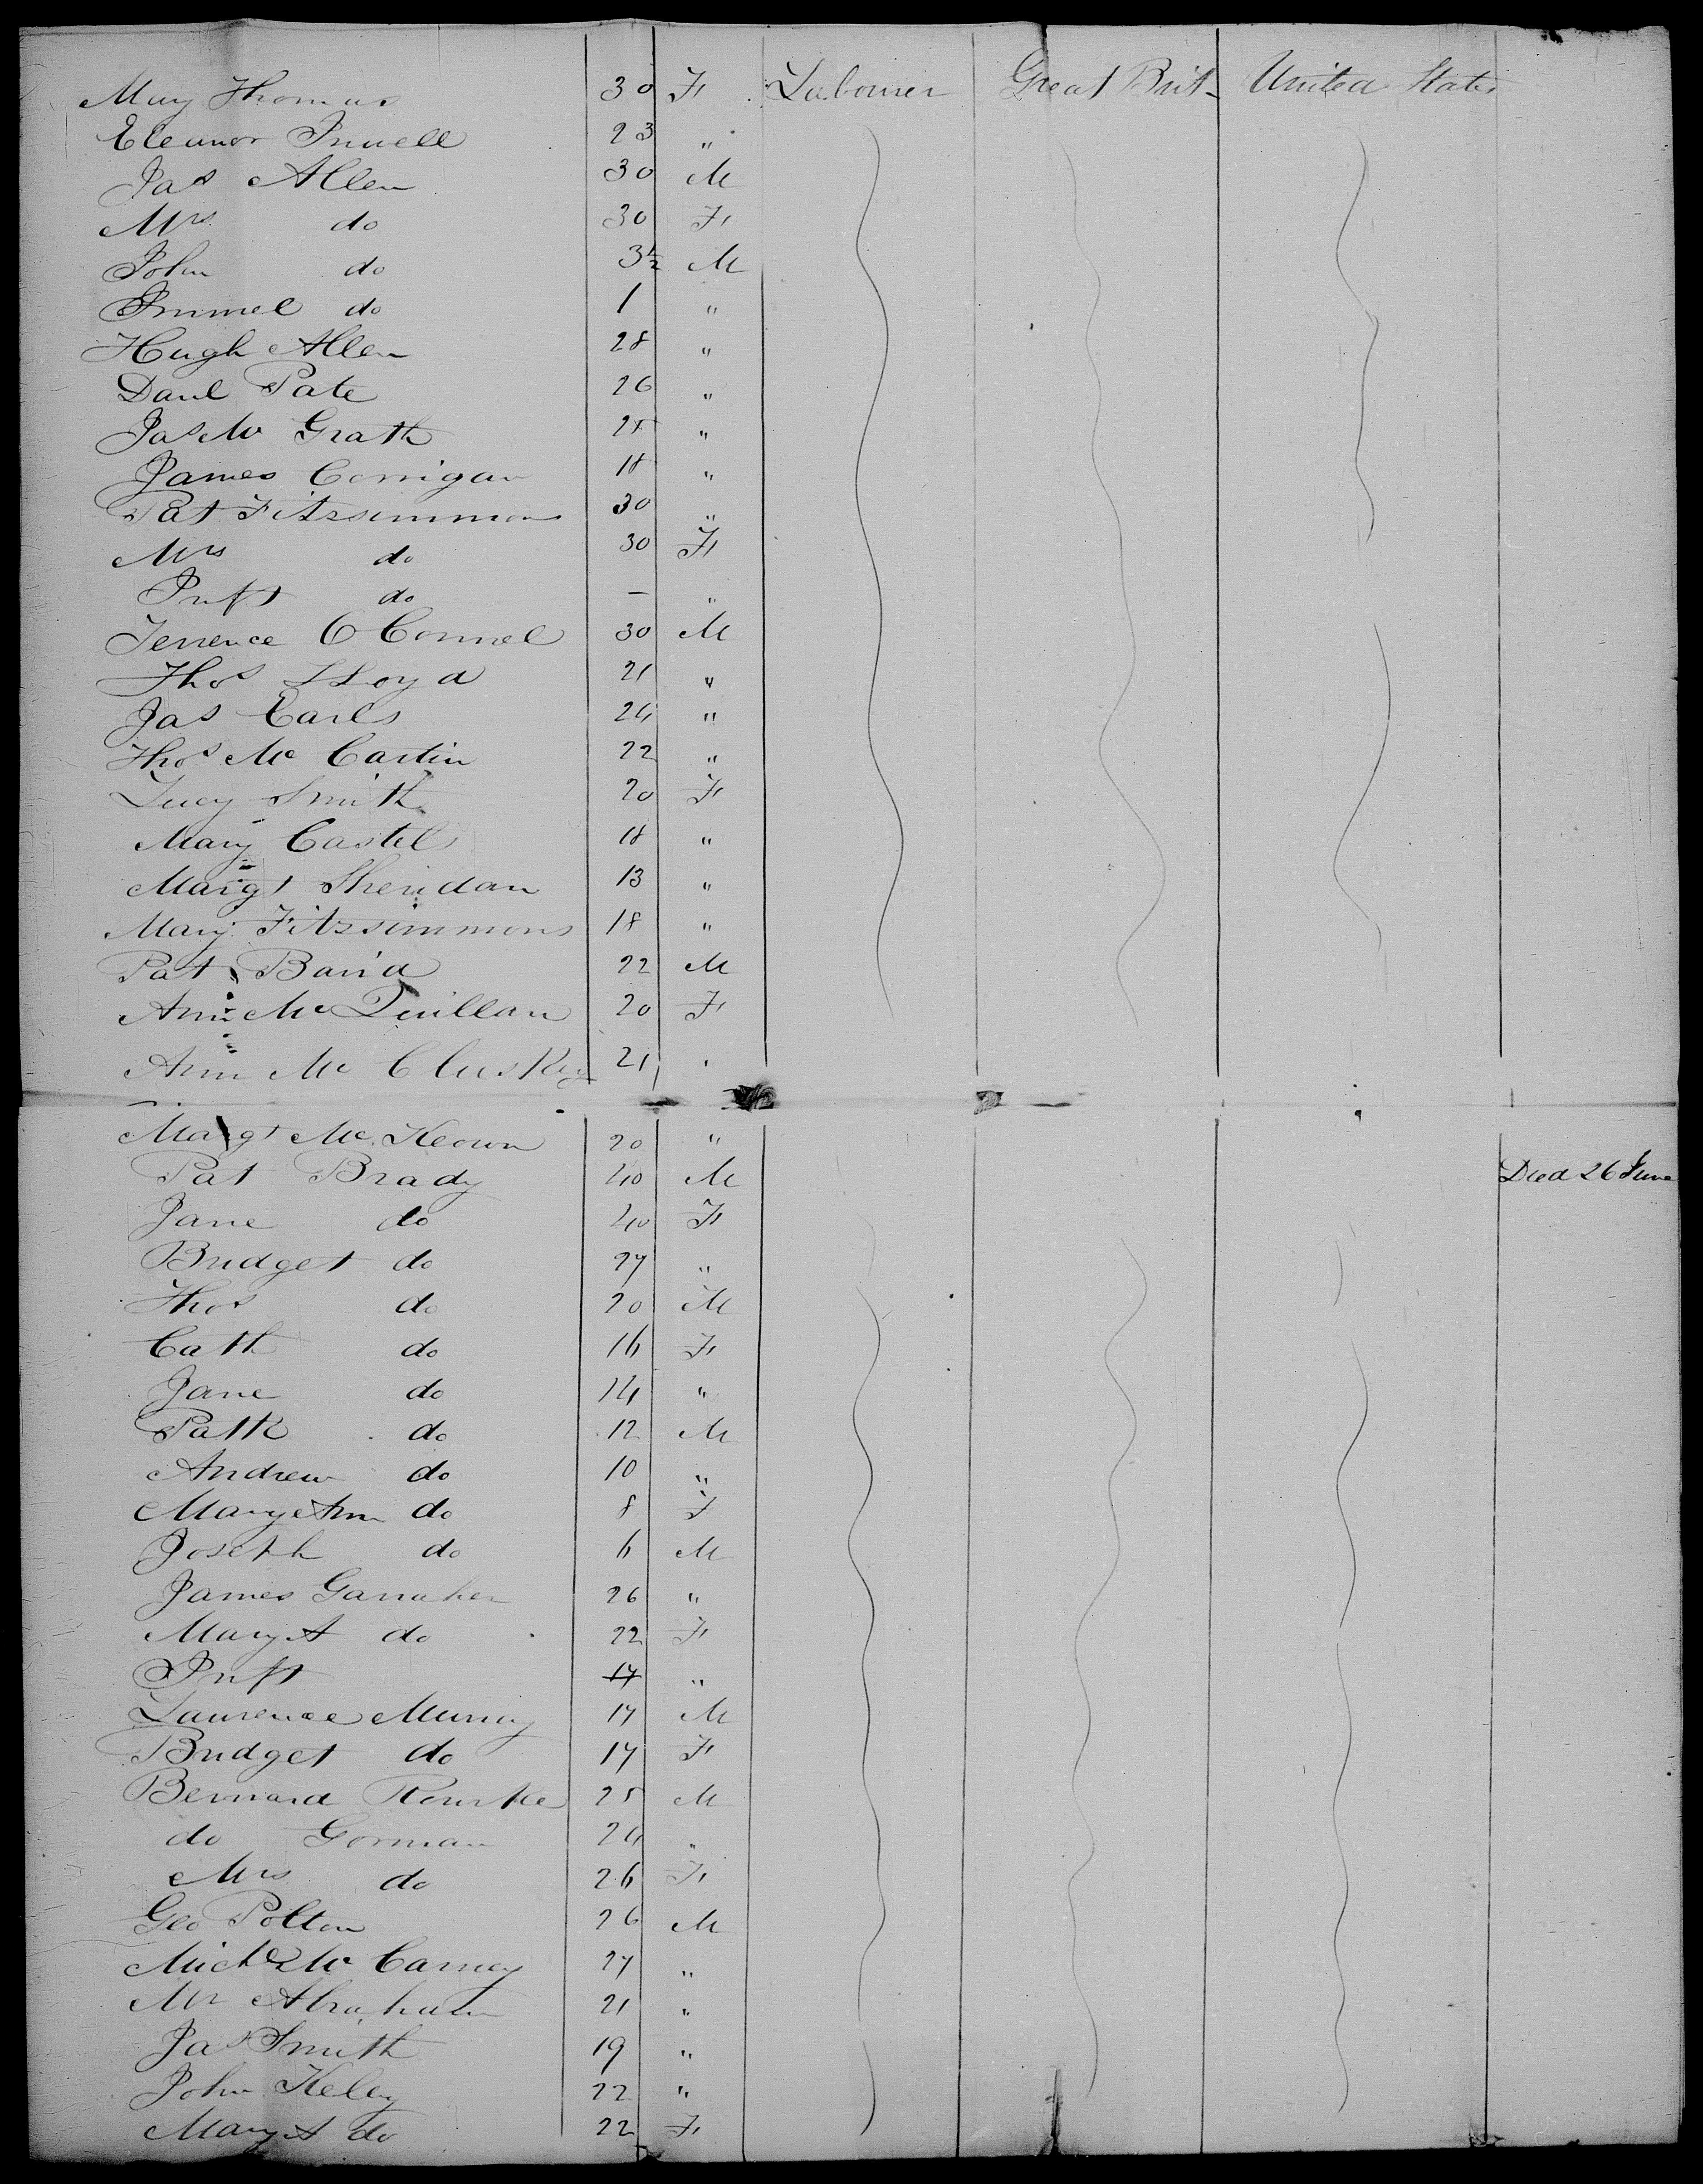 Mary Thomas 30 F Labourer Great Brit- United States
Eleanor 23 "
Jas Allen 30 M
Mrs do 30 F
John do 3½ M
do 1 "
Hugh Allen 28 "
Danl Pate 26 "
Jas Mc Grath 25 "
James Corrigan 18 "
Pat Fitzsimmons 30 "
Mrs do 30 F
Inft do — "
Terrence O Connel 30 M
Thos LLoyd 21 "
Jas Earls 24 "
Thos Mc Cartin 22 "
Lucy Smith 20 F
Mary Castels 18 "
Margt Sheridan 13 "
Mary Fitzsimmons 18 "
Pat Baird 22 M
Ann Mc Quillan 20 F
Ann Mc Cluskey 21 "
Margt Mc Keown 20 "
Pat Brady 40 M Died 26 June
Jane do 40 F
Bridget do 27 "
Thos do 20 M
Cath do 16 F
Jane do 14 "
Patk do 12 M
Andrew do 10 "
Mary Ann do 8 F
Joseph do 6 M
James Garraher 26 "
Mary A do 22 F
Inft "
Laurence Murray 17 M
Bridget do 17 F
Bernard Rourke 25 M
do Gorman 24 "
Mrs do 26 F
Geo Polton 26 M
Michl Mc Carney 27 "
Mr Abraham 21 "
Jas Smith 19 "
John Keley 22 "
Mary A do 22 F